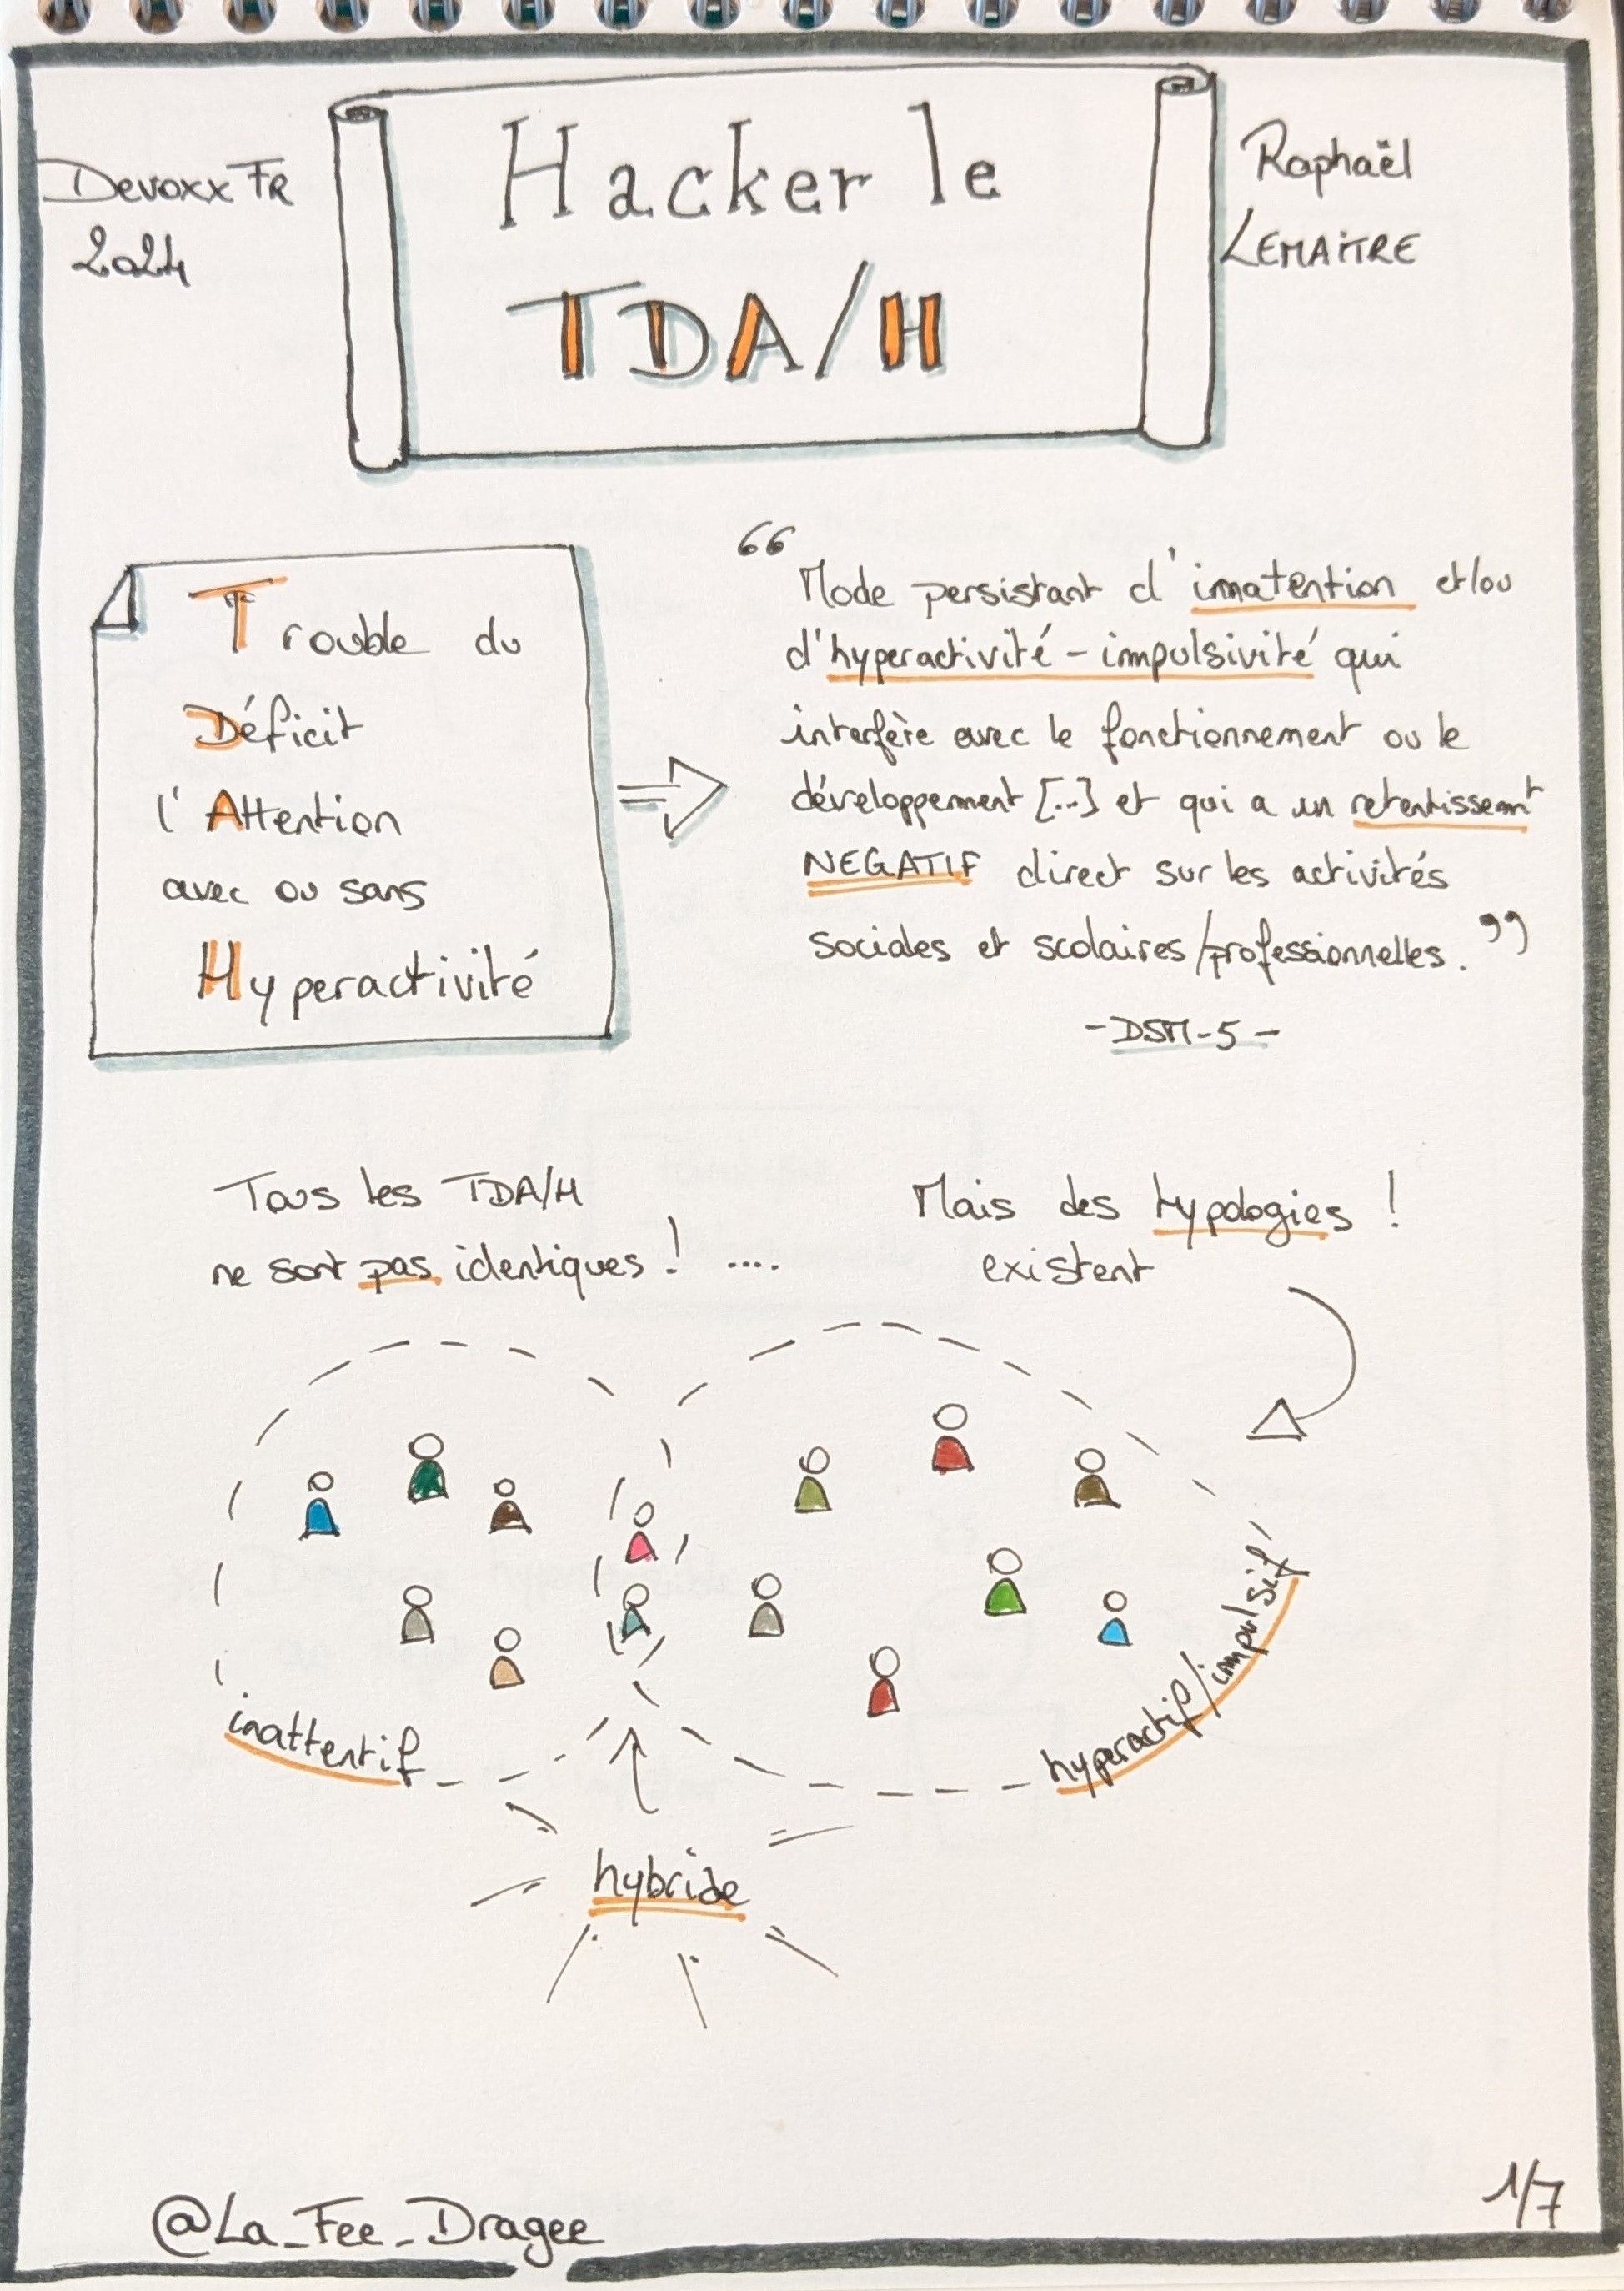 Devoxx FR
2024
Hacker le
TDA/H
Raphaël
LEMAITRE
Trouble du
Déficit
l'Attention
avec ou sans
Hyperactivité
“ Mode persistant d'innatention et/ou
d'hyperactivité - impulsivité qui
interfère avec le fonctionnement ou le
développement [...] et qui a un retentissemt
NEGATIF direct sur les activités
sociales et scolaires/professionnelles. ”
- DSM-5 -
Tous les TDA/H
ne sont pas identiques ! ....
Mais des typologies !
existent
inattentif
hyperactif/impulsif
hybride
@La_Fee_Dragee
1/7